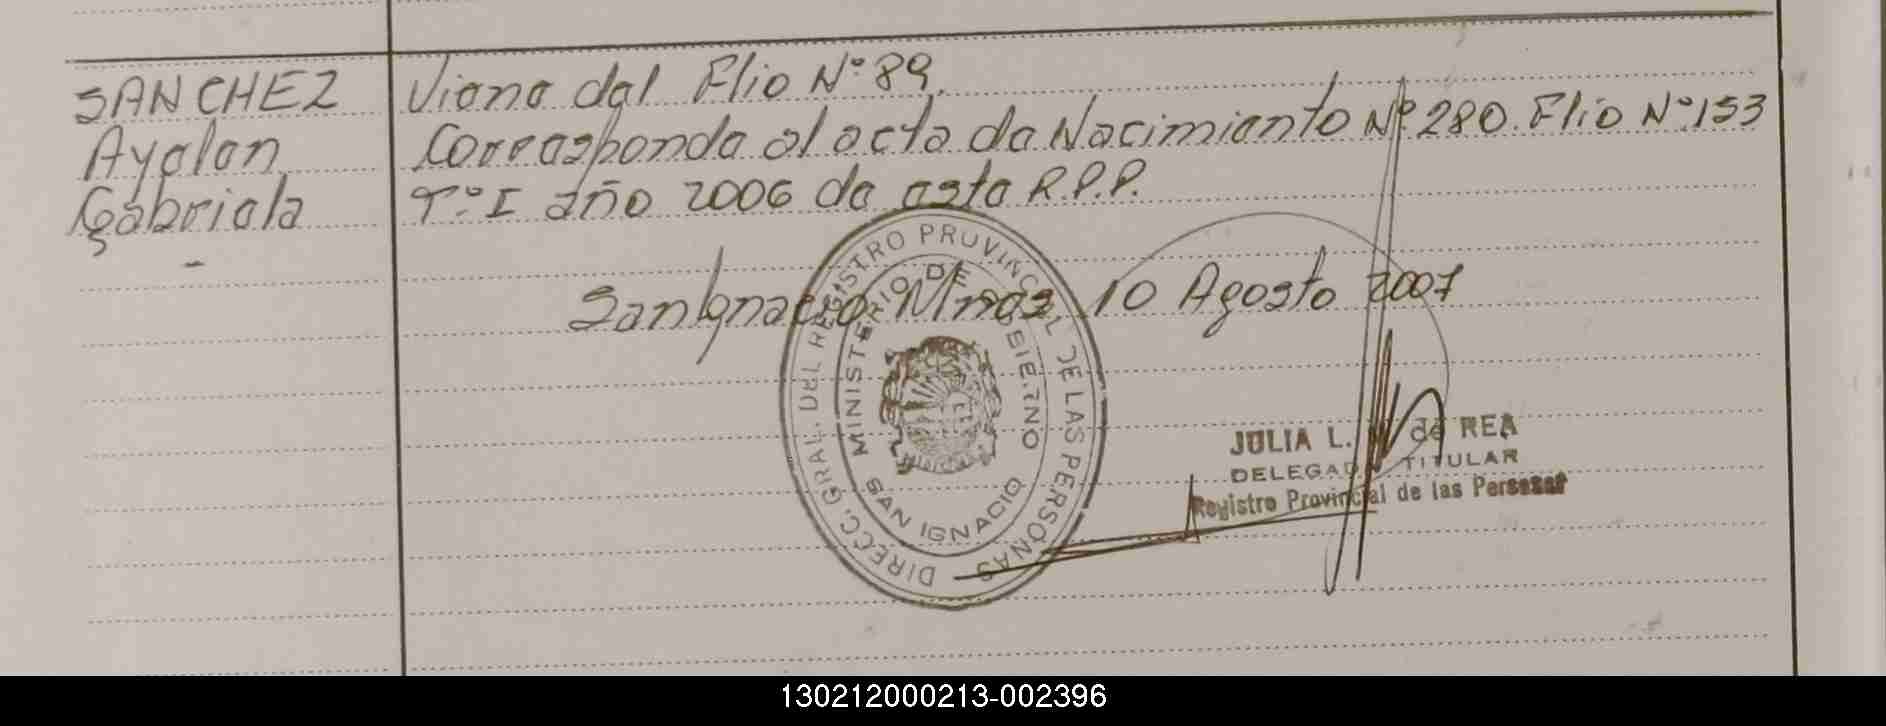 SANCHEZ
Ayelen
Gabriela
Viene del Flio Nº 89.
Corresponde al acta de Nacimiento Nº 280. Flio Nº 153
Tº I año 2006 de esta R.P.P.
San Ignacio, Mnes, 10 Agosto 2007
DIRECC. GRAL. DEL REGISTRO PROVINCIAL DE LAS PERSONAS
MINISTERIO DE GOBIERNO
SAN IGNACIO
JULIA L. de REA
DELEGADA TITULAR
Registro Provincial de las Personas
130212000213-002396